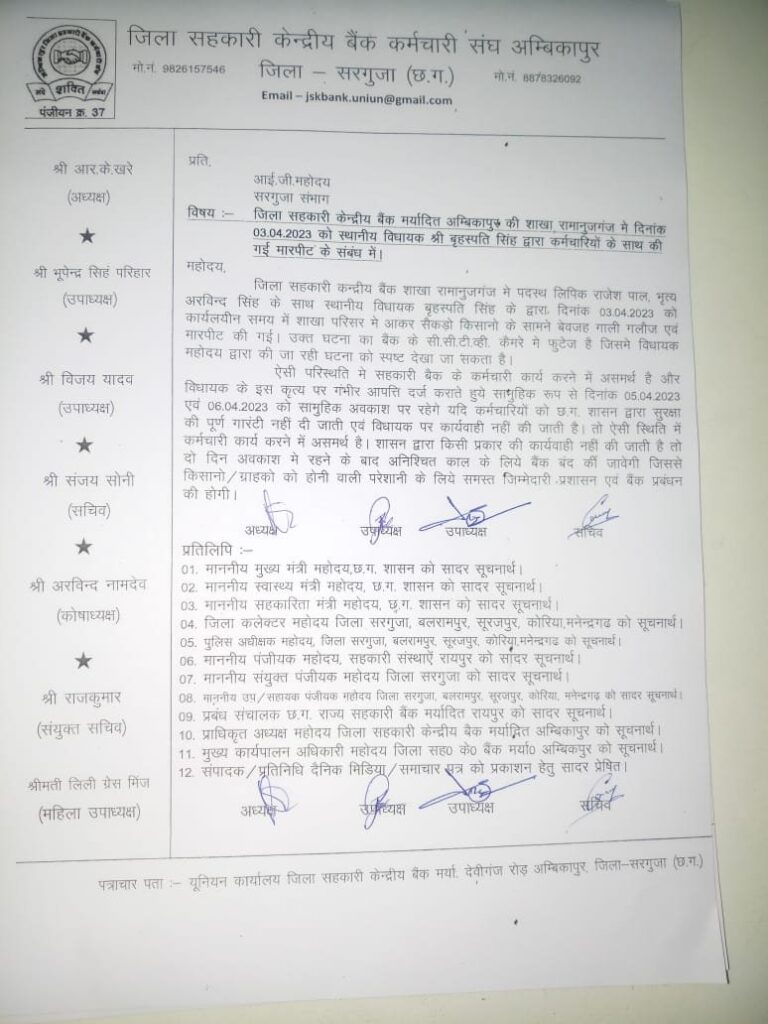 जिला सहकारी केन्द्रीय बैंक कर्मचारी संघ अम्बिकापुर
मो.नं. 9826157546 जिला – सरगुजा (छ.ग.) मो.नं. 8878326092
Email – jskbank.uniun@gmail.com
शक्ति
पंजीयन क्र. 37
श्री आर.के.खरे
(अध्यक्ष)
श्री भूपेन्द्र सिहं परिहार
(उपाध्यक्ष)
श्री विजय यादव
(उपाध्यक्ष)
श्री संजय सोनी
(सचिव)
श्री अरविन्द नामदेव
(कोषाध्यक्ष)
श्री राजकुमार
(संयुक्त सचिव)
श्रीमती लिली ग्रेस मिंज
(महिला उपाध्यक्ष)
प्रति,
आई.जी.महोदय
सरगुजा संभाग
विषय :– जिला सहकारी केन्द्रीय बैंक मर्यादित अम्बिकापुर की शाखा रामानुजगंज मे दिनांक
03.04.2023 को स्थानीय विधायक श्री बृहस्पति सिंह द्वारा कर्मचारियों के साथ की
गई मारपीट के संबंध में।
महोदय,
जिला सहकारी कन्द्रीय बैंक शाखा रामानुजगंज मे पदस्थ लिपिक राजेश पाल, भृत्य
अरविन्द सिंह के साथ स्थानीय विधायक बृहस्पति सिंह के द्वारा दिनांक 03.04.2023 को
कार्यलयीन समय में शाखा परिसर मे आकर सैकड़ो किसानो के सामने बेवजह गाली गलौज एवं
मारपीट की गई। उक्त घटना का बैंक के सी.सी.टी.व्ही. कैमरे मे फुटेज है जिसमे विधायक
महोदय द्वारा की जा रही घटना को स्पष्ट देखा जा सकता है।
ऐसी परिस्थति मे सहकारी बैंक के कर्मचारी कार्य करने में असमर्थ है और
विधायक के इस कृत्य पर गंभीर आपत्ति दर्ज कराते हुये सामुहिक रूप से दिनांक 05.04.2023
एवं 06.04.2023 को सामुहिक अवकाश पर रहेगे यदि कर्मचारियों को छ.ग. शासन द्वारा सुरक्षा
की पूर्ण गारंटी नहीं दी जाती एवं विधायक पर कार्यवाही नहीं की जाती है। तो ऐसी स्थिति में
कर्मचारी कार्य करने में असमर्थ है। शासन द्वारा किसी प्रकार की कार्यवाही नहीं की जाती है तो
दो दिन अवकाश मे रहने के बाद अनिश्चित काल के लिये बैंक बंद की जावेगी जिससे
किसानो/ग्राहको को होनी वाली परेशानी के लिये समस्त जिम्मेदारी प्रशासन एवं बैंक प्रबंधन
की होगी।
अध्यक्ष उपाध्यक्ष उपाध्यक्ष सचिव
प्रतिलिपि :–
01. माननीय मुख्य मंत्री महोदय,छ.ग. शासन को सादर सूचनार्थ।
02. माननीय स्वास्थ्य मंत्री महोदय, छ.ग. शासन को सादर सूचनार्थ।
03. माननीय सहकारिता मंत्री महोदय, छ.ग. शासन को सादर सूचनार्थ।
04. जिला कलेक्टर महोदय जिला सरगुजा, बलरामपुर, सूरजपुर, कोरिया,मनेन्द्रगढ को सूचनार्थ।
05. पुलिस अधीक्षक महोदय, जिला सरगुजा, बलरामपुर, सूरजपुर, कोरिया,मनेन्द्रगढ को सूचनार्थ।
06. माननीय पंजीयक महोदय, सहकारी संस्थाऐं रायपुर को सादर सूचनार्थ।
07. माननीय संयुक्त पंजीयक महोदय जिला सरगुजा को सादर सूचनार्थ।
08. माननीय उप/सहायक पंजीयक महोदय जिला सरगुजा, बलरामपुर, सूरजपुर, कोरिया, मनेन्द्रगढ को सादर सूचनार्थ।
09. प्रबंध संचालक छ.ग. राज्य सहकारी बैंक मर्यादित रायपुर को सादर सूचनार्थ।
10. प्राधिकृत अध्यक्ष महोदय जिला सहकारी केन्द्रीय बैक मर्यादित अम्बिकापुर को सूचनार्थ।
11. मुख्य कार्यपालन अधिकारी महोदय जिला सह0 के0 बैंक मर्या0 अम्बिकपुर को सूचनार्थ।
12. संपादक/प्रतिनिधि दैनिक मिडिया/समाचार पत्र को प्रकाशन हेतु सादर प्रेषित।
अध्यक्ष उपाध्यक्ष उपाध्यक्ष सचिव
पत्राचार पता :– यूनियन कार्यालय जिला सहकारी केन्द्रीय बैंक मर्या. देवीगंज रोड़ अम्बिकापुर, जिला–सरगुजा (छ.ग.)